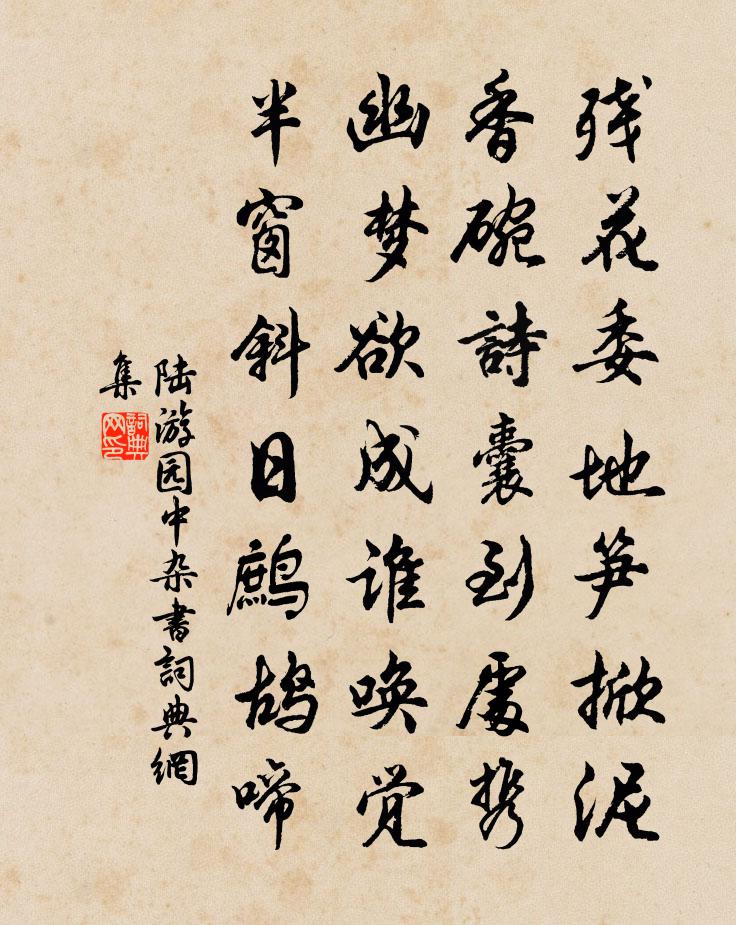 残花委地笋掀泥
香碗詩囊到處携
幽梦欲成谁唤觉
半窗斜日鹧鸪啼
陆游园中杂書詞典網
集
詞典
网印